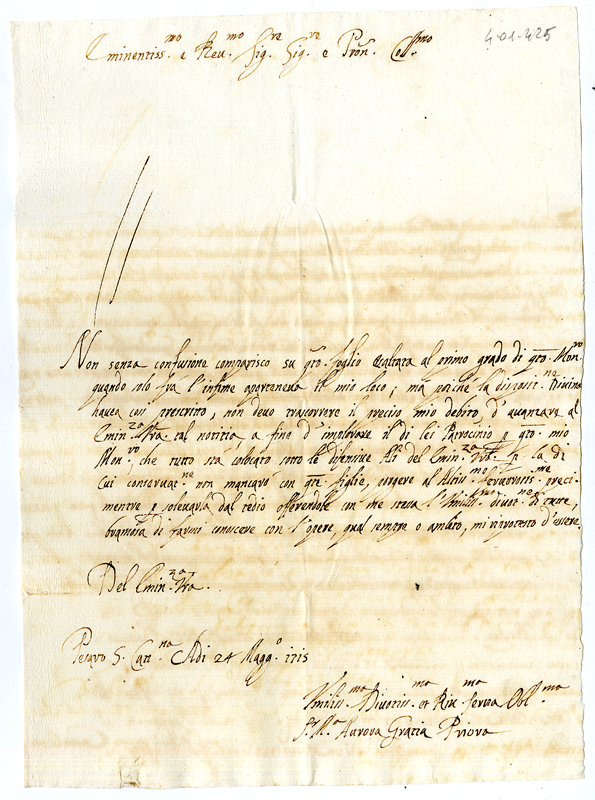 4-01-425
Eminentiss.mo e Reu.mo Sig.re Sig.re e Pron. Coll.mo
Non senza confusione comparisco su qto. foglio esaltata al primo grado di qto. Mon.ro
quando solo fra l'infime aparteneua il mio loco; mà poiche la disposit.ne Diuina
hauea cosi prescritto, non deuo trascorrere il preciso mio debito d'auanzare al
Emin.za Vra. tal notitia a fine d'implorare il di lei Patrocinio p qto. mio
Mon.ro, che tutto stà colocato sotto le difensiue Ali del Emin.za Vra. p la di
cui conseruat.ne non mancarò con qte. figlie, porgere al Altiss.mo feruorosiss.me preci
mentre p solleuarla dal tedio offerendole con me stessa l'Umiliss.mo diuot.ne di tutte,
bramosa di farmi conoscere con l'opere, qual sempre ò ambito, mi riprotesto d'essere.
Del Emin.za Vra.
Pesaro S. Cat.na Adi 24 Magg.o 1715
Vmiliss.ma Diuotiss.ma et Riu.ma serua Obl.ma
Sr. M.a Aurora Gratia Priora